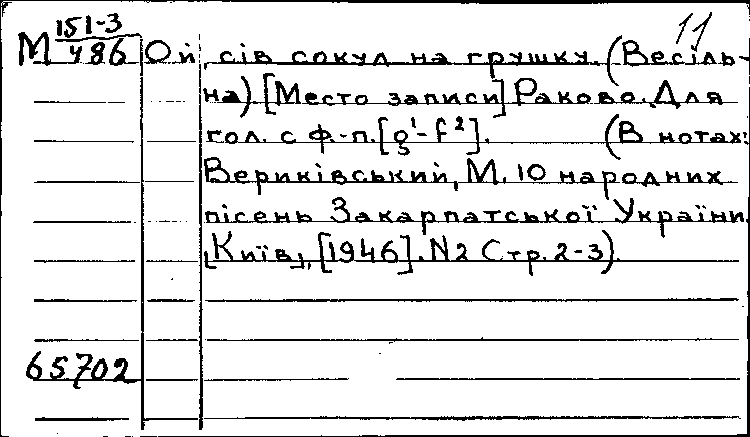 11
М 151-3/486 Ой, сів сокул на грушку. (Весіль-
на). [Место записи] Раково. Для
гол. с ф.-п. [g¹-f²]. (В нотах:
Вериківський, М. 10 народних
пісень Закарпатської України.
[Київ], [1946]. N2 Стр. 2-3).
65702